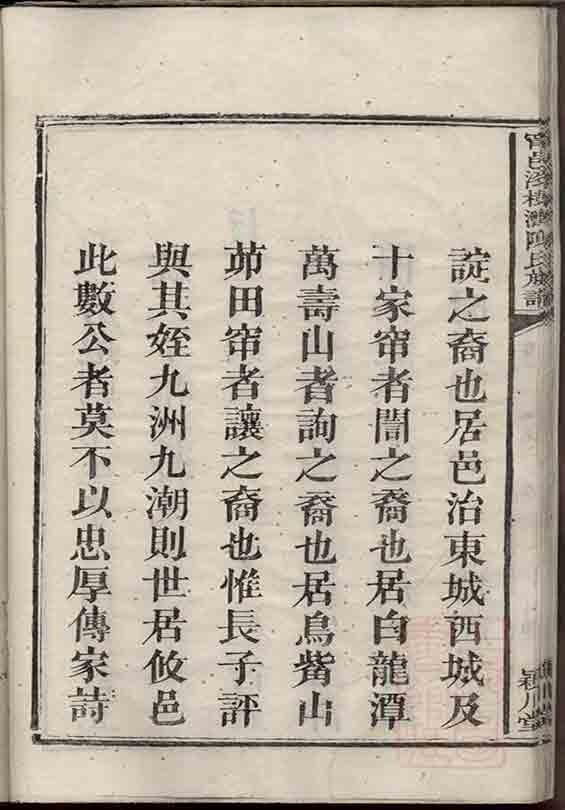 諚之裔也居邑治東城西城及
十家帘者誾之裔也居白龍潭
萬壽山者詢之裔也居鳥觜山
茆田帘者讓之裔也惟長子評
與其姪九洲九潮則世居攸邑
此數公者莫不以忠厚傳家詩
陳氏族譜
潁川堂